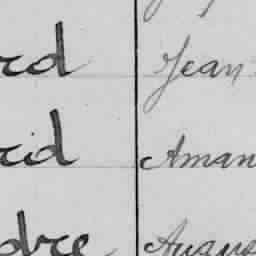 rd Jean
rid Aman
dre Augus